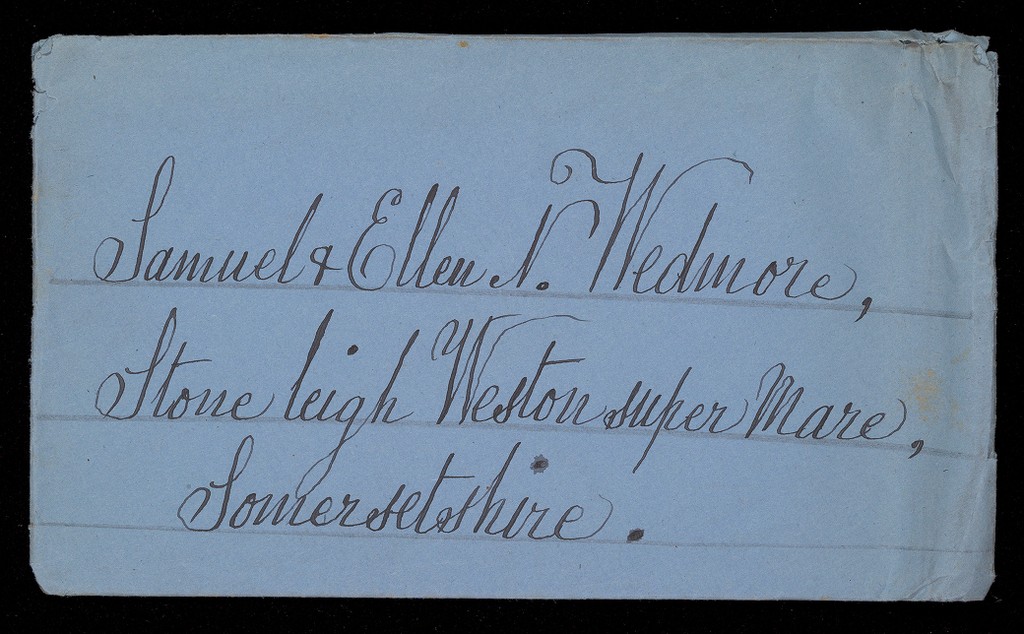 Samuel & Ellen N. Wedmore,
Stone leigh Weston super Mare,
Somersetshire.